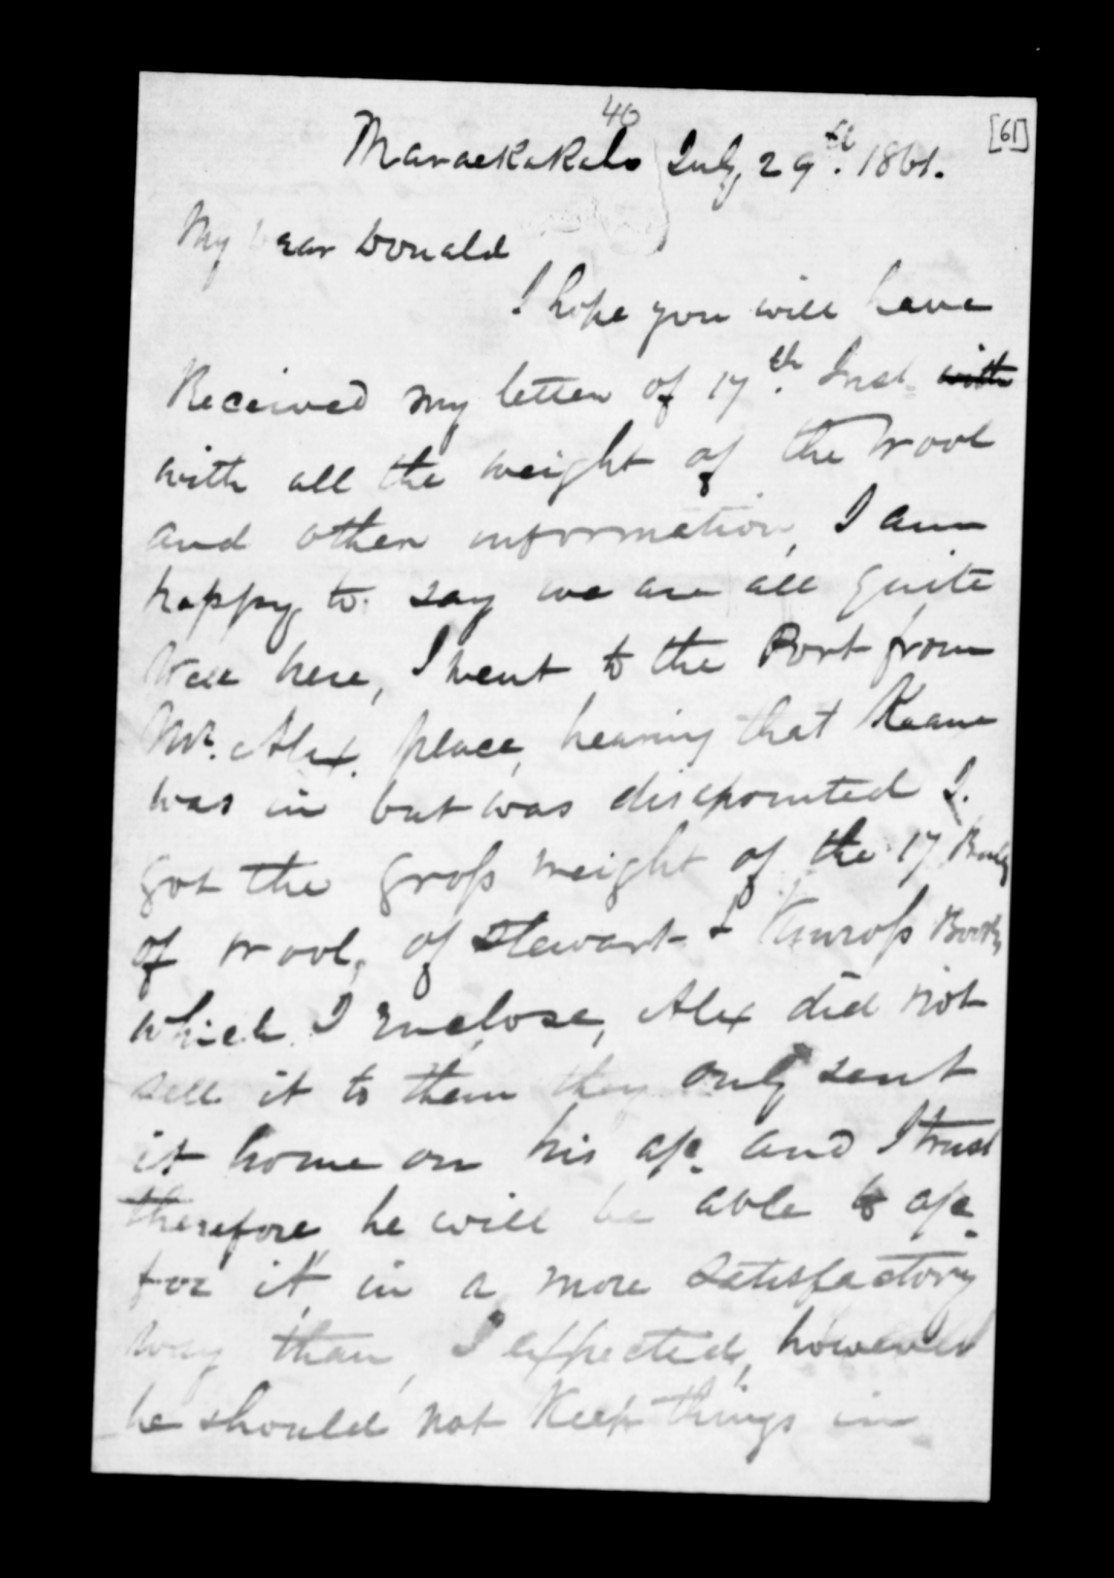 40
[61]
Maraekakaho July 29th. 1861.
My Dear Donald
I hope you will have
Received my letter of 17th. Inst. with
with all the weight of the wool
and other information, I am
happy to say we are all quite
well here, I went to the Port from
Mr. Alex. place, hearing that Keane
was in but was disapointed I.
got the gross weight of the 17 Bales
of wool, of Stewart & Kinross Books,
which I Enclose, Alex did not
sell it to them they only sent
it home on his a/c. and I trust
therefore he will be able to a/c.
for it, in a more satisfactory
way than, I expected, however
he should not Keep things in